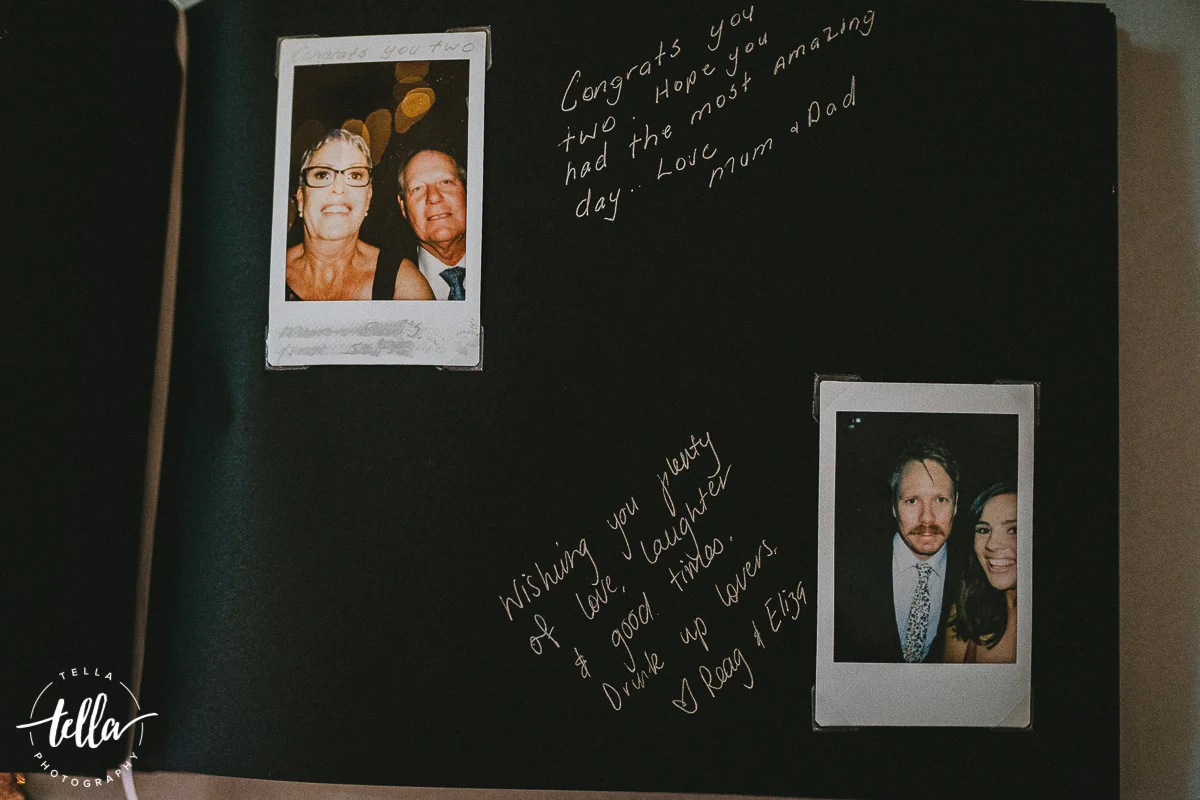 Congrats you two
Congrats you
two. Hope you
had the most amazing
day.. Love
mum & Dad
Wishing you plenty
of love, laughter
& good times.
Drink up lovers.
♡ Reag & Eliza
TELLA
tella
PHOTOGRAPHY